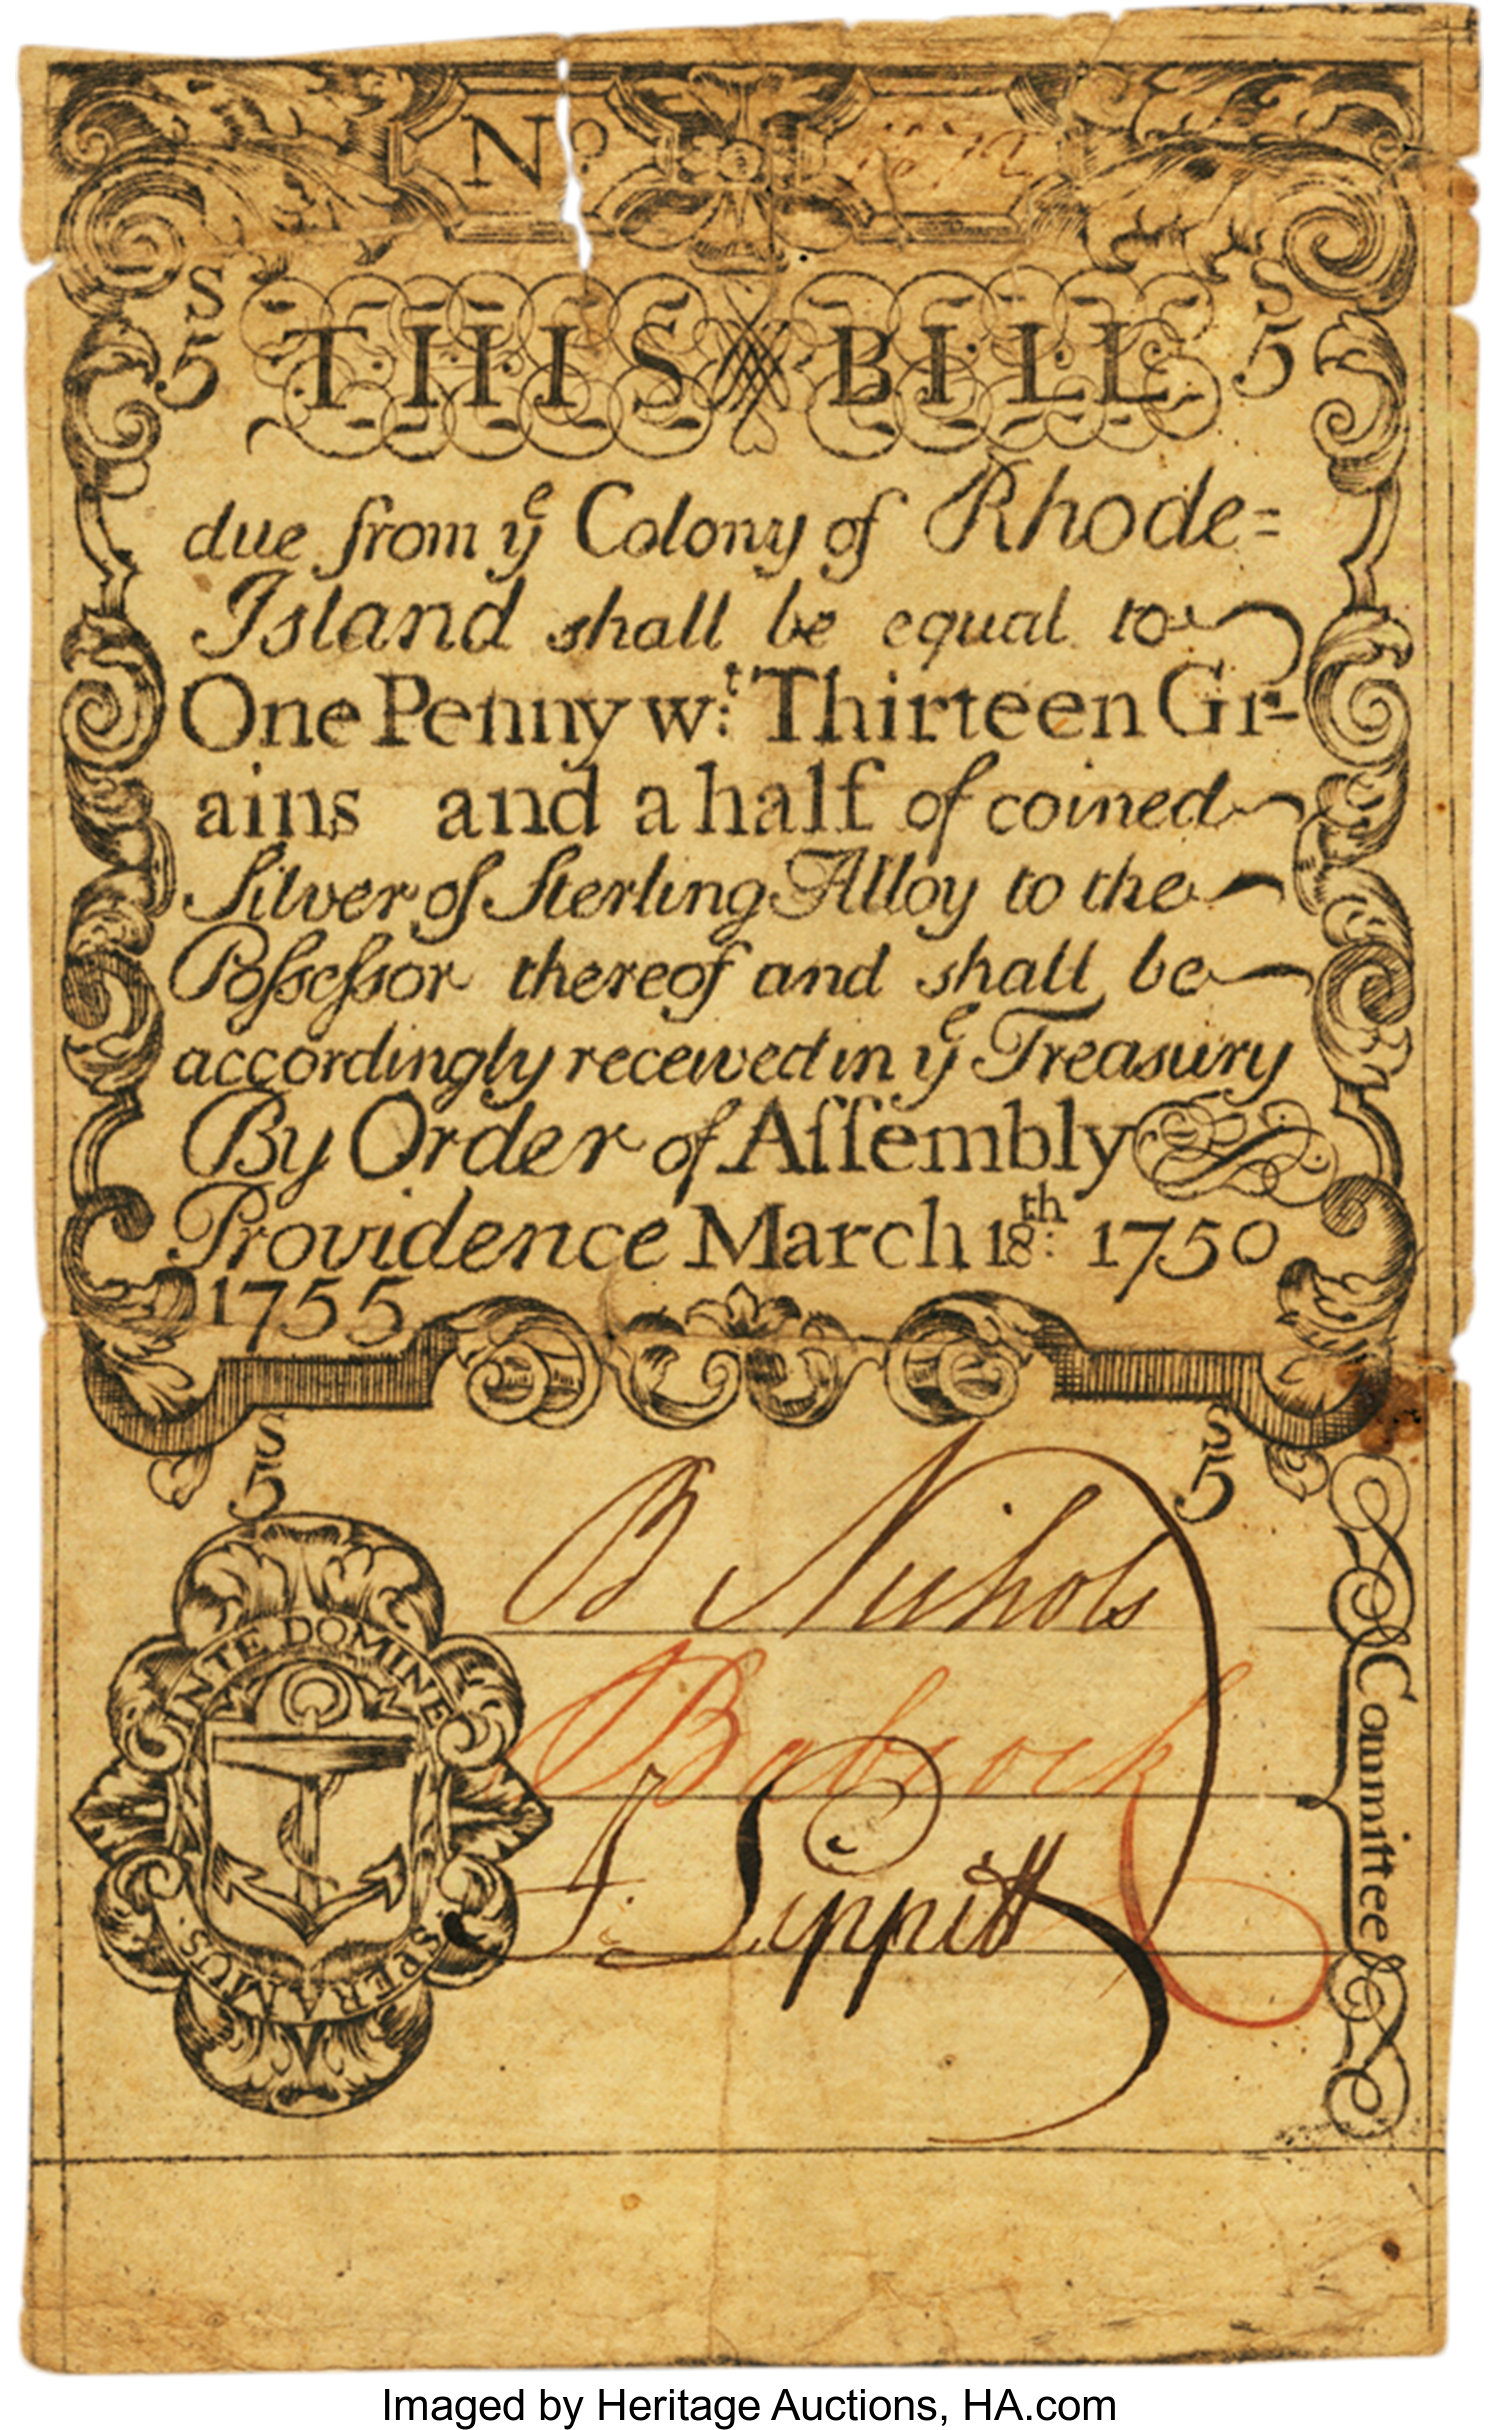 No
S S
5 THIS BILL 5
due from ye Colony of Rhode=
Island shall be equal to
One Penny w:t Thirteen Gr-
ains and a half of coined
Silver of Sterling Alloy to the
Poſseſsor thereof and shall be
accordingly received in ye Treasury
By Order of Aſſembly
Providence March 18th: 1750
1755
S S
5 5
B Nichols
Babcock
J. Lippitt
Committee
INTE DOMINE
SPERAMUS
Imaged by Heritage Auctions, HA.com